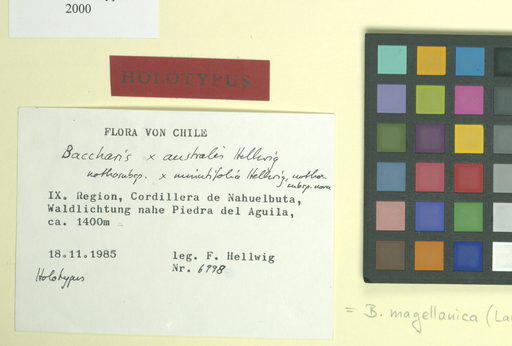 2000
HOLOTYPUS
FLORA VON CHILE
Baccharis x australis Hellwig
nothosubsp. x minutifolia Hellwig, nothosubsp. nova
IX. Region, Cordillera de Nahuelbuta,
Waldlichtung nahe Piedra del Aguila,
ca. 1400m
18.11.1985 leg. F. Hellwig
Nr. 6998
Holotypus
= B. magellanica (Lam